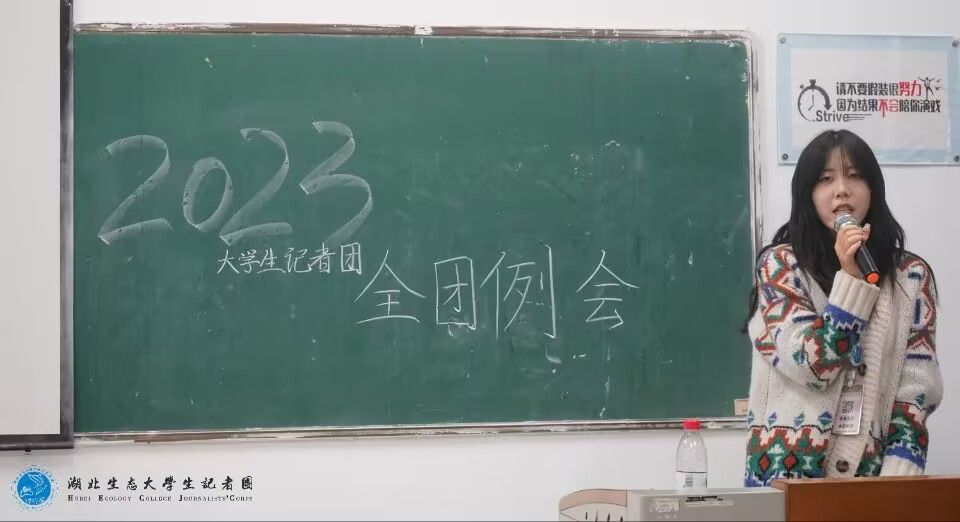 2023
大学生记者团
全团例会
请不要假装很努力
因为结果不会陪你演戏
Strive
湖北生态大学生记者团
HUBEI ECOLOGY COLLEGE JOURNALISTS'CORPS